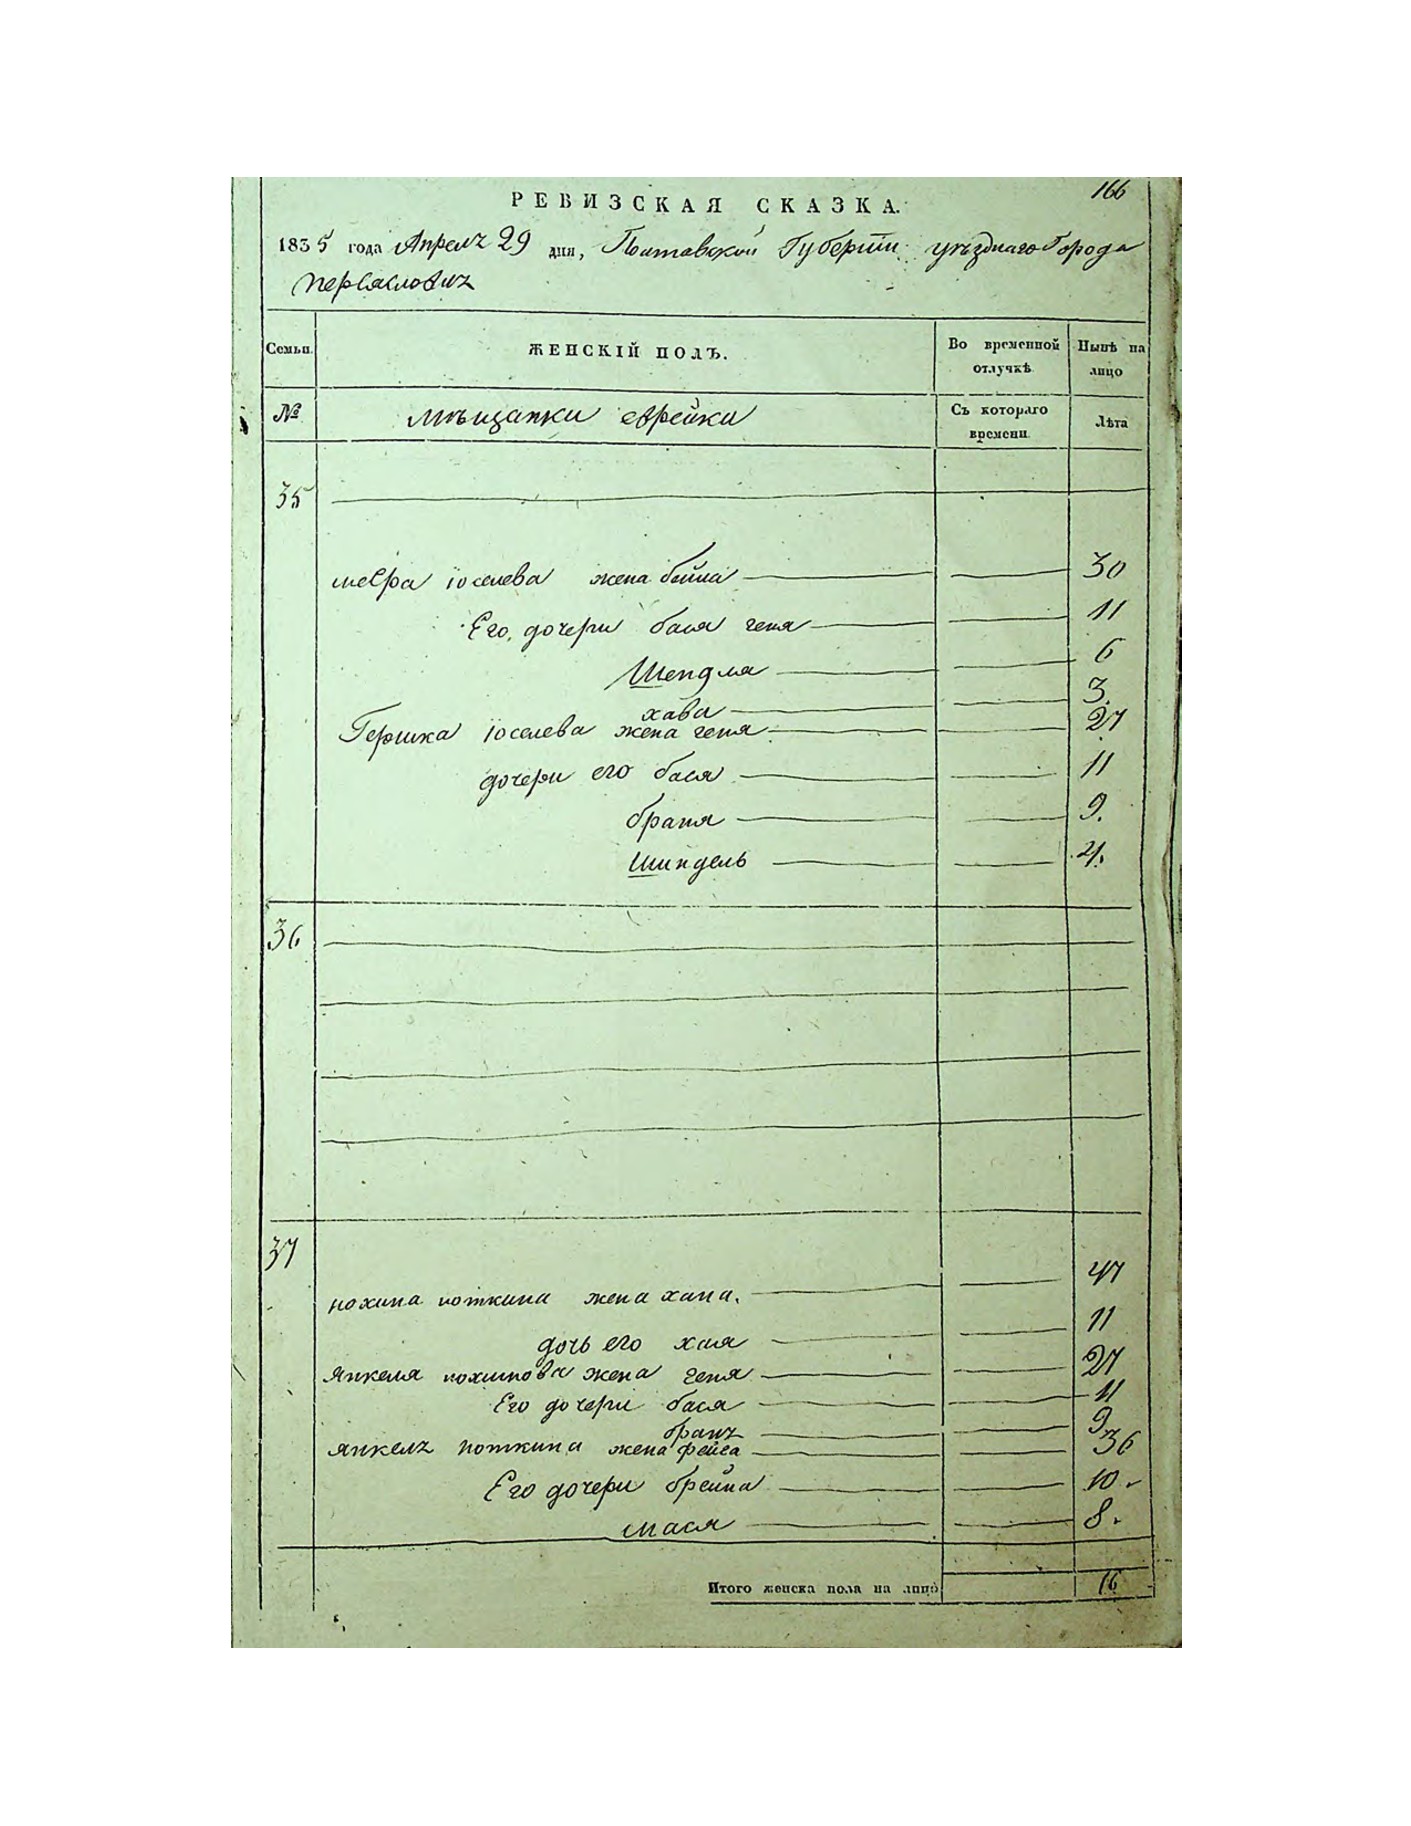 166
РЕВИЗСКАЯ СКАЗКА.
1835 года Апреля 29 дня, Полтавской Губернии уѣзднаго Города
Переяслова
Семьи. ЖЕНСКІЙ ПОЛЪ. Во временной отлучкѣ Нынѣ на лицо
№ мѣщанки Еврейки Съ котораго времени Лѣта
35
иоселева жена бейла 30
Его дочери бася геня 11
Шендля 6
хава 3.
Гершка иоселева жена геня 27
дочери его бася 11
браня 9.
Шиндель 4.
36
37
нохима ноткина жена хана. 47
дочь его хая 11
Янкеля нохимова жена геня 27
Его дочери бася 11
браня 9
янкеля ноткина жена фейга 36
Его дочери брейна 10.
мася 8.
Итого женска пола на лицо 16